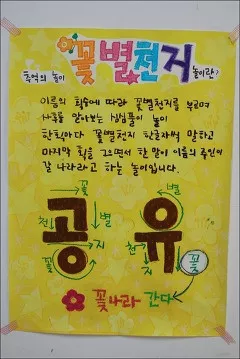 추억의 놀이 꽃별천지 놀이란?
이름의 획수에 따라 꽃별천지를 부르며
사주를 알아보는 심심풀이 놀이
한획마다 꽃별천지 한글자씩 말하고
마지막 획을 그으면서 한 말이 이름의 주인이
갈 나라라고 하는 놀이입니다.
꽃 별
공 유
천 별 지 꽃
천 지 꽃
꽃나라 간다